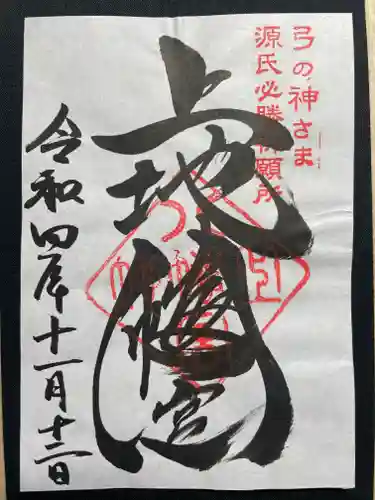 弓の神さま
源氏必勝祈願所
上地八幡宮
令和四年十一月十二日